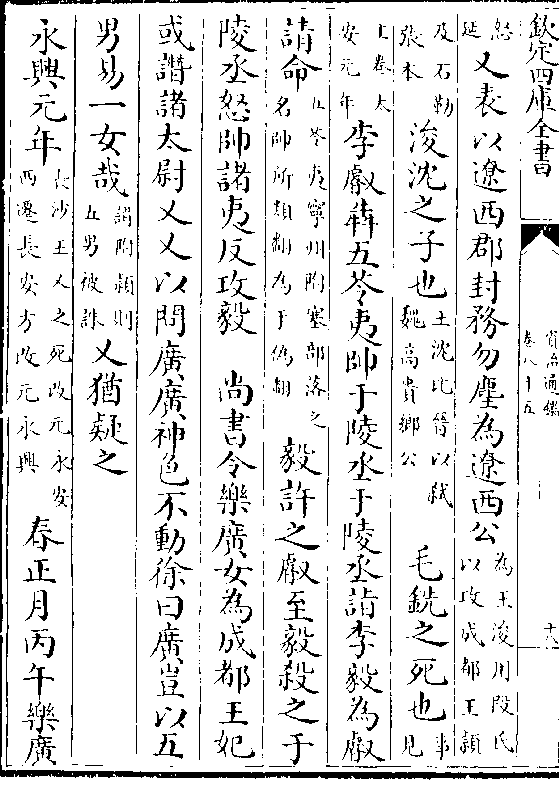 欽定四庫全書 資治通鑑 卷八十五 十八
怒延又表以遼西郡封務勿塵為遼西公為王浚用段氏以攻成都王頴
及石勒張本浚沈之子也王沈比晉以弑魏高貴鄉公毛銑之死也事見
上卷太安元年李叡犇五苓夷帥于陵丞于陵丞詣李毅為叡
請命五苓夷寧州附塞部落之名帥所類翻為于偽翻毅許之叡至毅殺之于
陵丞怒帥諸夷反攻毅 尚書令樂廣女為成都王妃
或譖諸太尉乂乂以問廣廣神色不動徐曰廣豈以五
男易一女哉謂附頴則五男被誅乂猶疑之
永興元年長沙王乂之死改元永安西遷長安方改元永興春正月丙午樂廣